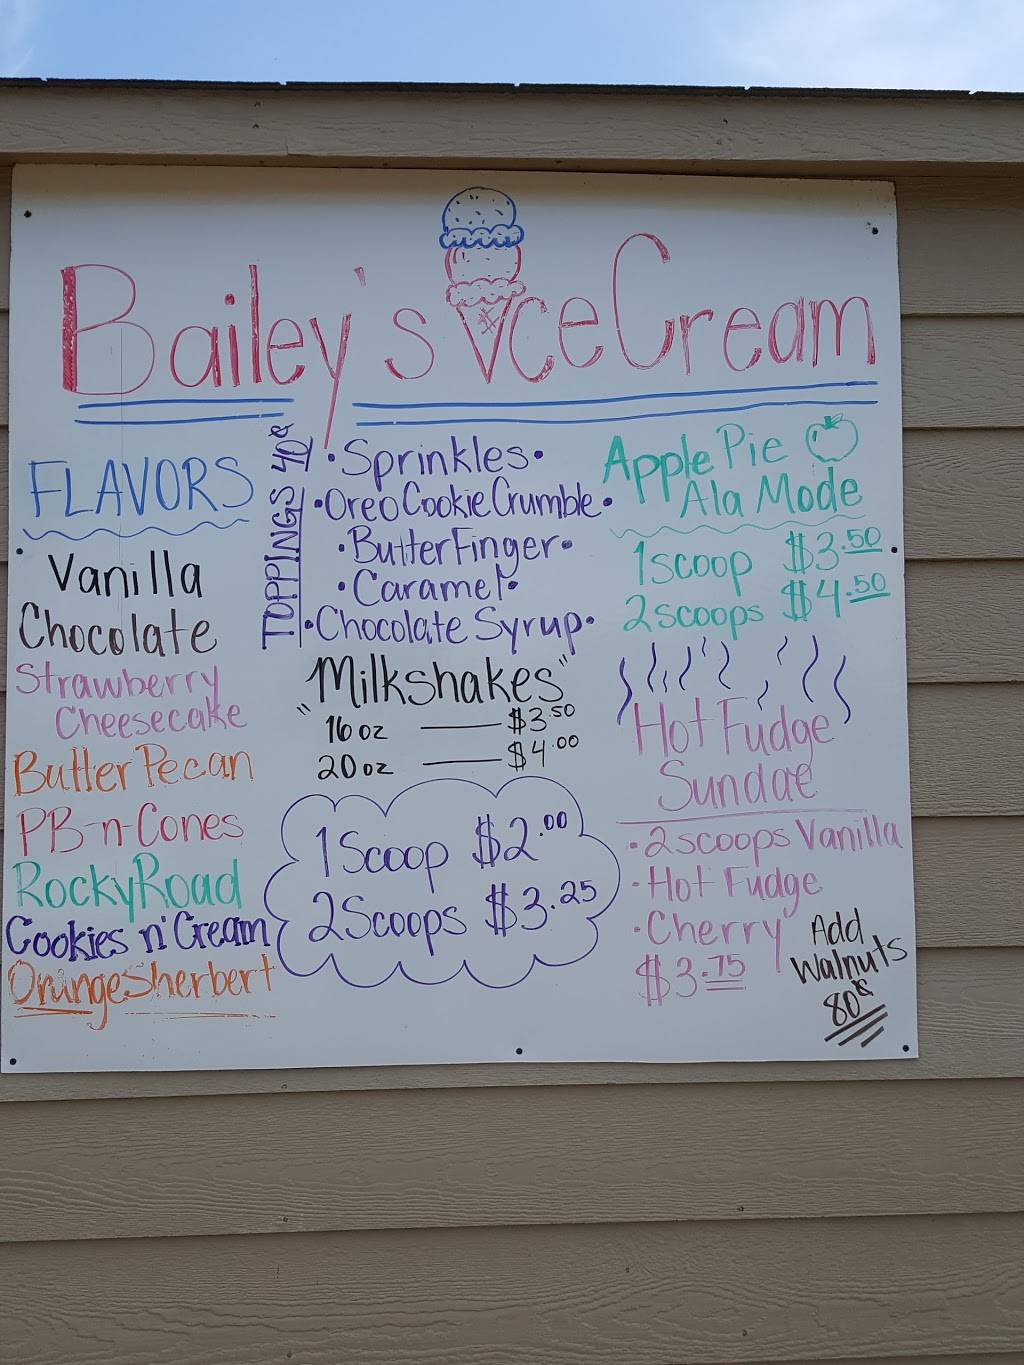 Bailey's Ice Cream
FLAVORS
Vanilla
Chocolate
Strawberry
Cheesecake
Butter Pecan
PB-n-Cones
Rocky Road
Cookies n' Cream
Orange Sherbert
TOPPINGS 40¢
• Sprinkles •
• Oreo Cookie Crumble •
• ButterFinger •
• Caramel •
• Chocolate Syrup •
"Milkshakes"
16 oz — $3.50
20 oz — $4.00
1 Scoop $2.00
2 Scoops $3.25
Apple Pie
Ala Mode
1 scoop $3.50
2 scoops $4.50
Hot Fudge
Sundae
• 2 scoops Vanilla
• Hot Fudge
• Cherry
$3.75
Add
Walnuts
80¢